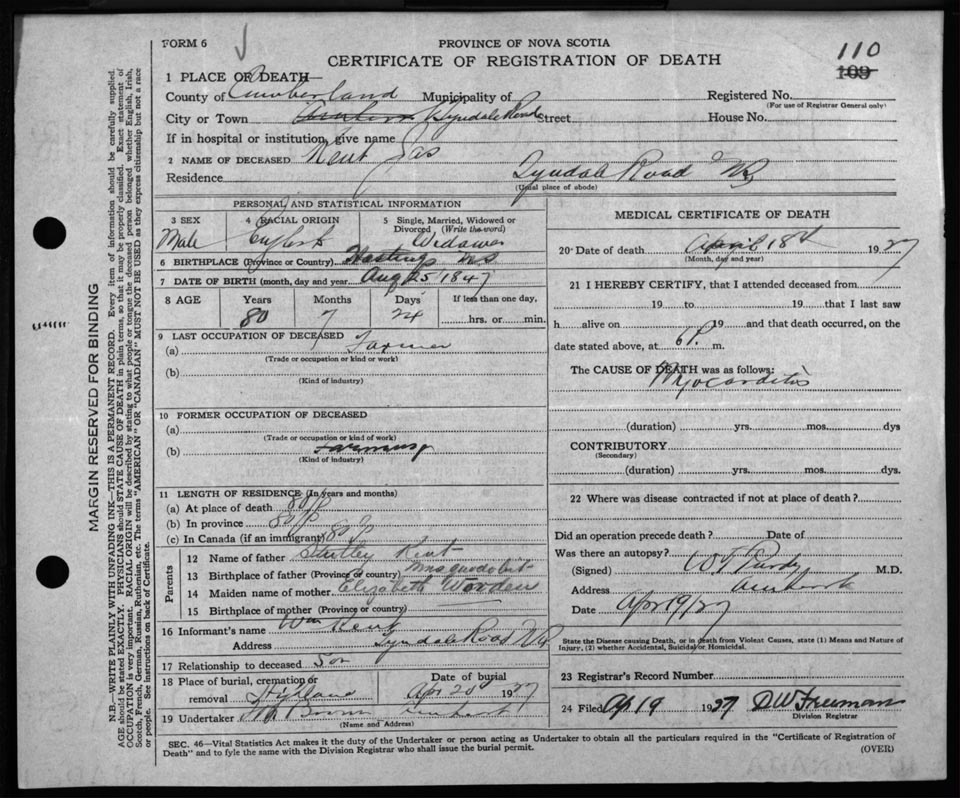 FORM 6
PROVINCE OF NOVA SCOTIA
110
CERTIFICATE OF REGISTRATION OF DEATH
109
1 PLACE OF DEATH
County of Cumberland Municipality of Registered No.
(For use of Registrar General only)
City or Town Amherst Tyndale Road Street House No.
If in hospital or institution, give name
2 NAME OF DECEASED Kent Jas
Residence Tyndal Road NS
(Usual place of abode)
PERSONAL AND STATISTICAL INFORMATION
3 SEX 4 RACIAL ORIGIN 5 Single, Married, Widowed or Divorced (Write the word)
Male English Widower
6 BIRTHPLACE (Province or Country) Hastings NS
7 DATE OF BIRTH (month, day and year) Aug 25 1847
8 AGE Years Months Days If less than one day,
80 7 24 hrs. or min.
9 LAST OCCUPATION OF DECEASED
(a) Farmer
(Trade or occupation or kind of work)
(b)
(Kind of industry)
10 FORMER OCCUPATION OF DECEASED
(a)
(Trade or occupation or kind of work)
(b) Farming
(Kind of industry)
11 LENGTH OF RESIDENCE (In years and months)
(a) At place of death 80
(b) In province 80
(c) In Canada (if an immigrant) 80
Parents
12 Name of father Kent
13 Birthplace of father (Province or country) Musquodobit
14 Maiden name of mother Elizabeth Wooden
15 Birthplace of mother (Province or country)
16 Informant's name Wm Kent
Address Tyndale Road NS
17 Relationship to deceased Son
18 Place of burial, cremation or removal Highland Date of burial Apr 20 1927
19 Undertaker Brown Amherst
(Name and Address)
MEDICAL CERTIFICATE OF DEATH
20 Date of death April 18 1927
(Month, day and year)
21 I HEREBY CERTIFY, that I attended deceased from
19 to 19 that I last saw
h alive on 19 and that death occurred, on the
date stated above, at 6 P. m.
The CAUSE OF DEATH was as follows:
Myocarditis
(duration) yrs. mos. dys
CONTRIBUTORY
(Secondary)
(duration) yrs. mos. dys.
22 Where was disease contracted if not at place of death?
Did an operation precede death? Date of
Was there an autopsy?
(Signed) Purdy M.D.
Address Amherst
Date Apr 19/27
State the Disease causing Death, or in death from Violent Causes, state (1) Means and Nature of
Injury, (2) whether Accidental, Suicidal or Homicidal.
23 Registrar's Record Number
24 Filed Ap 19 1927 Freeman
Division Registrar
SEC. 46—Vital Statistics Act makes it the duty of the Undertaker or person acting as Undertaker to obtain all the particulars required in the "Certificate of Registration of
Death" and to fyle the same with the Division Registrar who shall issue the burial permit.
(OVER)
MARGIN RESERVED FOR BINDING
N.B.—WRITE PLAINLY WITH UNFADING INK—THIS IS A PERMANENT RECORD. Every item of information should be carefully supplied.
AGE should be stated EXACTLY. PHYSICIANS should STATE CAUSE OF DEATH in plain terms, so that it may be properly classified. Exact statement of
OCCUPATION is very important. RACIAL ORIGIN will be described by stating to what people or tongue the deceased person belonged whether English, Irish,
Scotch, French, German, Russian, Ruthenian, etc. The terms "AMERICAN" OR "CANADIAN" MUST NOT BE USED as they express citizenship but not a race
or people. See instructions on back of Certificate.